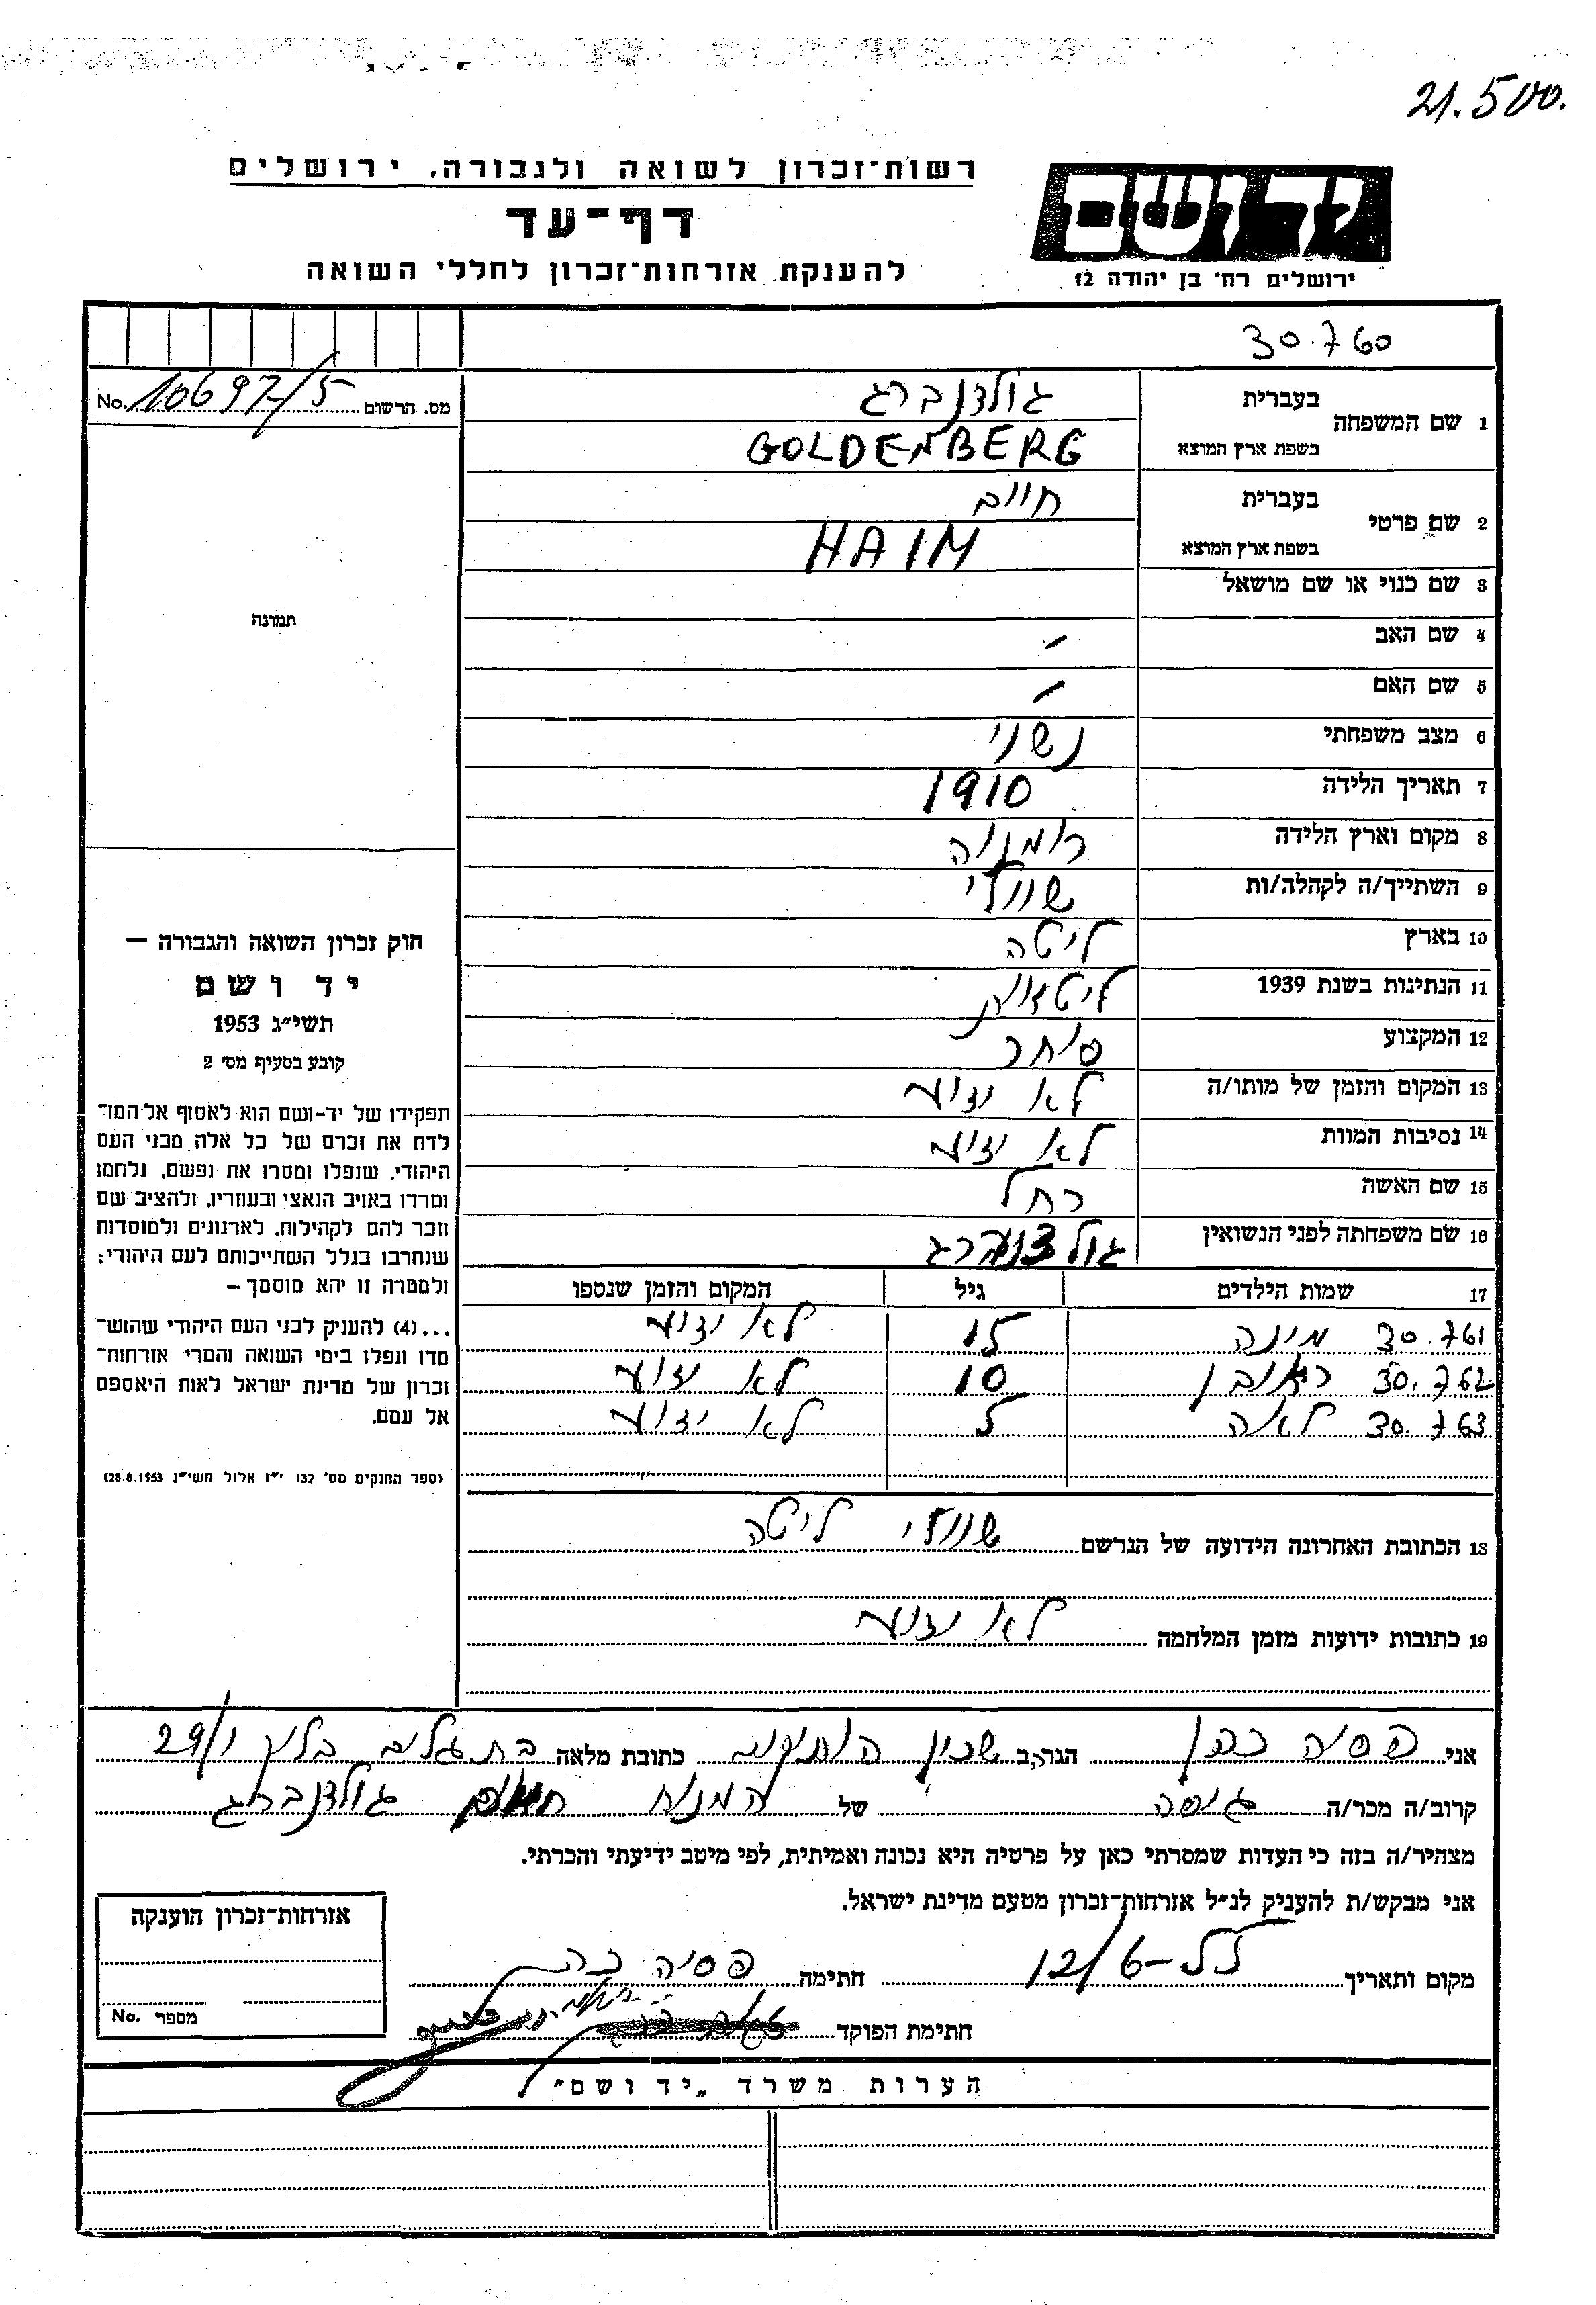 21.500.
רשות-זכרון לשואה ולגבורה, ירושלים
דף-עד
להענקת אזרחות-זכרון לחללי השואה
יד ושם
ירושלים רח' בן יהודה 12
30.760
מס. הרשום No. 10697/5
1 שם המשפחה בעברית גולדנברג
בשפת ארץ המוצא GOLDENBERG
2 שם פרטי בעברית חיים
בשפת ארץ המוצא HAIM
3 שם כנוי או שם מושאל
4 שם האב -
5 שם האם -
6 מצב משפחתי נשוי
7 תאריך הלידה 1910
8 מקום וארץ הלידה
9 השתייך/ה לקהלה/ות שוולי
10 בארץ ליטה
11 הנתינות בשנת 1939 ליטאית
12 המקצוע סוחר
13 המקום והזמן של מותו/ה לא ידוע
14 נסיבות המוות לא ידוע
15 שם האשה רחל
16 שם משפחתה לפני הנשואין
17 שמות הילדים גיל המקום והזמן שנספו
30.761 מינה 15 לא ידוע
30.762 ראובן 10 לא ידוע
30.763 לאה 5 לא ידוע
18 הכתובת האחרונה הידועה של הנרשם שוולי ליטה
19 כתובות ידועות מזמן המלחמה לא ידוע
תמונה
חוק זכרון השואה והגבורה —
יד ושם
תשי"ג 1953
קובע בסעיף מס' 2
תפקידו של יד-ושם הוא לאסוף אל המו-
לדת את זכרם של כל אלה מבני העם
היהודי, שנפלו ומסרו את נפשם, נלחמו
ומרדו באויב הנאצי ובעוזריו, ולהציב שם
וזכר להם לקהילות, לארגונים ולמוסדות
שנחרבו בגלל השתייכותם לעם היהודי;
ולמטרה זו יהא מוסמך —
...(4) להעניק לבני העם היהודי שהוש-
מדו ונפלו בימי השואה והמרי אזרחות-
זכרון של מדינת ישראל לאות היאספם
אל עמם.
(ספר החוקים מס' 132 י"ז אלול תשי"ג 28.8.1953)
אני פסיה כהן הגר/ה ב שכון הותיקים כתובת מלאה בת גלים בלוק 29/1
קרוב/ה מכר/ה גיסה של המנוח חיים גולדנברג
מצהיר/ה בזה כי העדות שמסרתי כאן על פרטיה היא נכונה ואמיתית, לפי מיטב ידיעתי והכרתי.
אני מבקש/ת להעניק לנ"ל אזרחות-זכרון מטעם מדינת ישראל.
מקום ותאריך 12/6- חתימה פסיה כהן
חתימת הפוקד
אזרחות-זכרון הוענקה
מספר No.
הערות משרד „יד ושם"